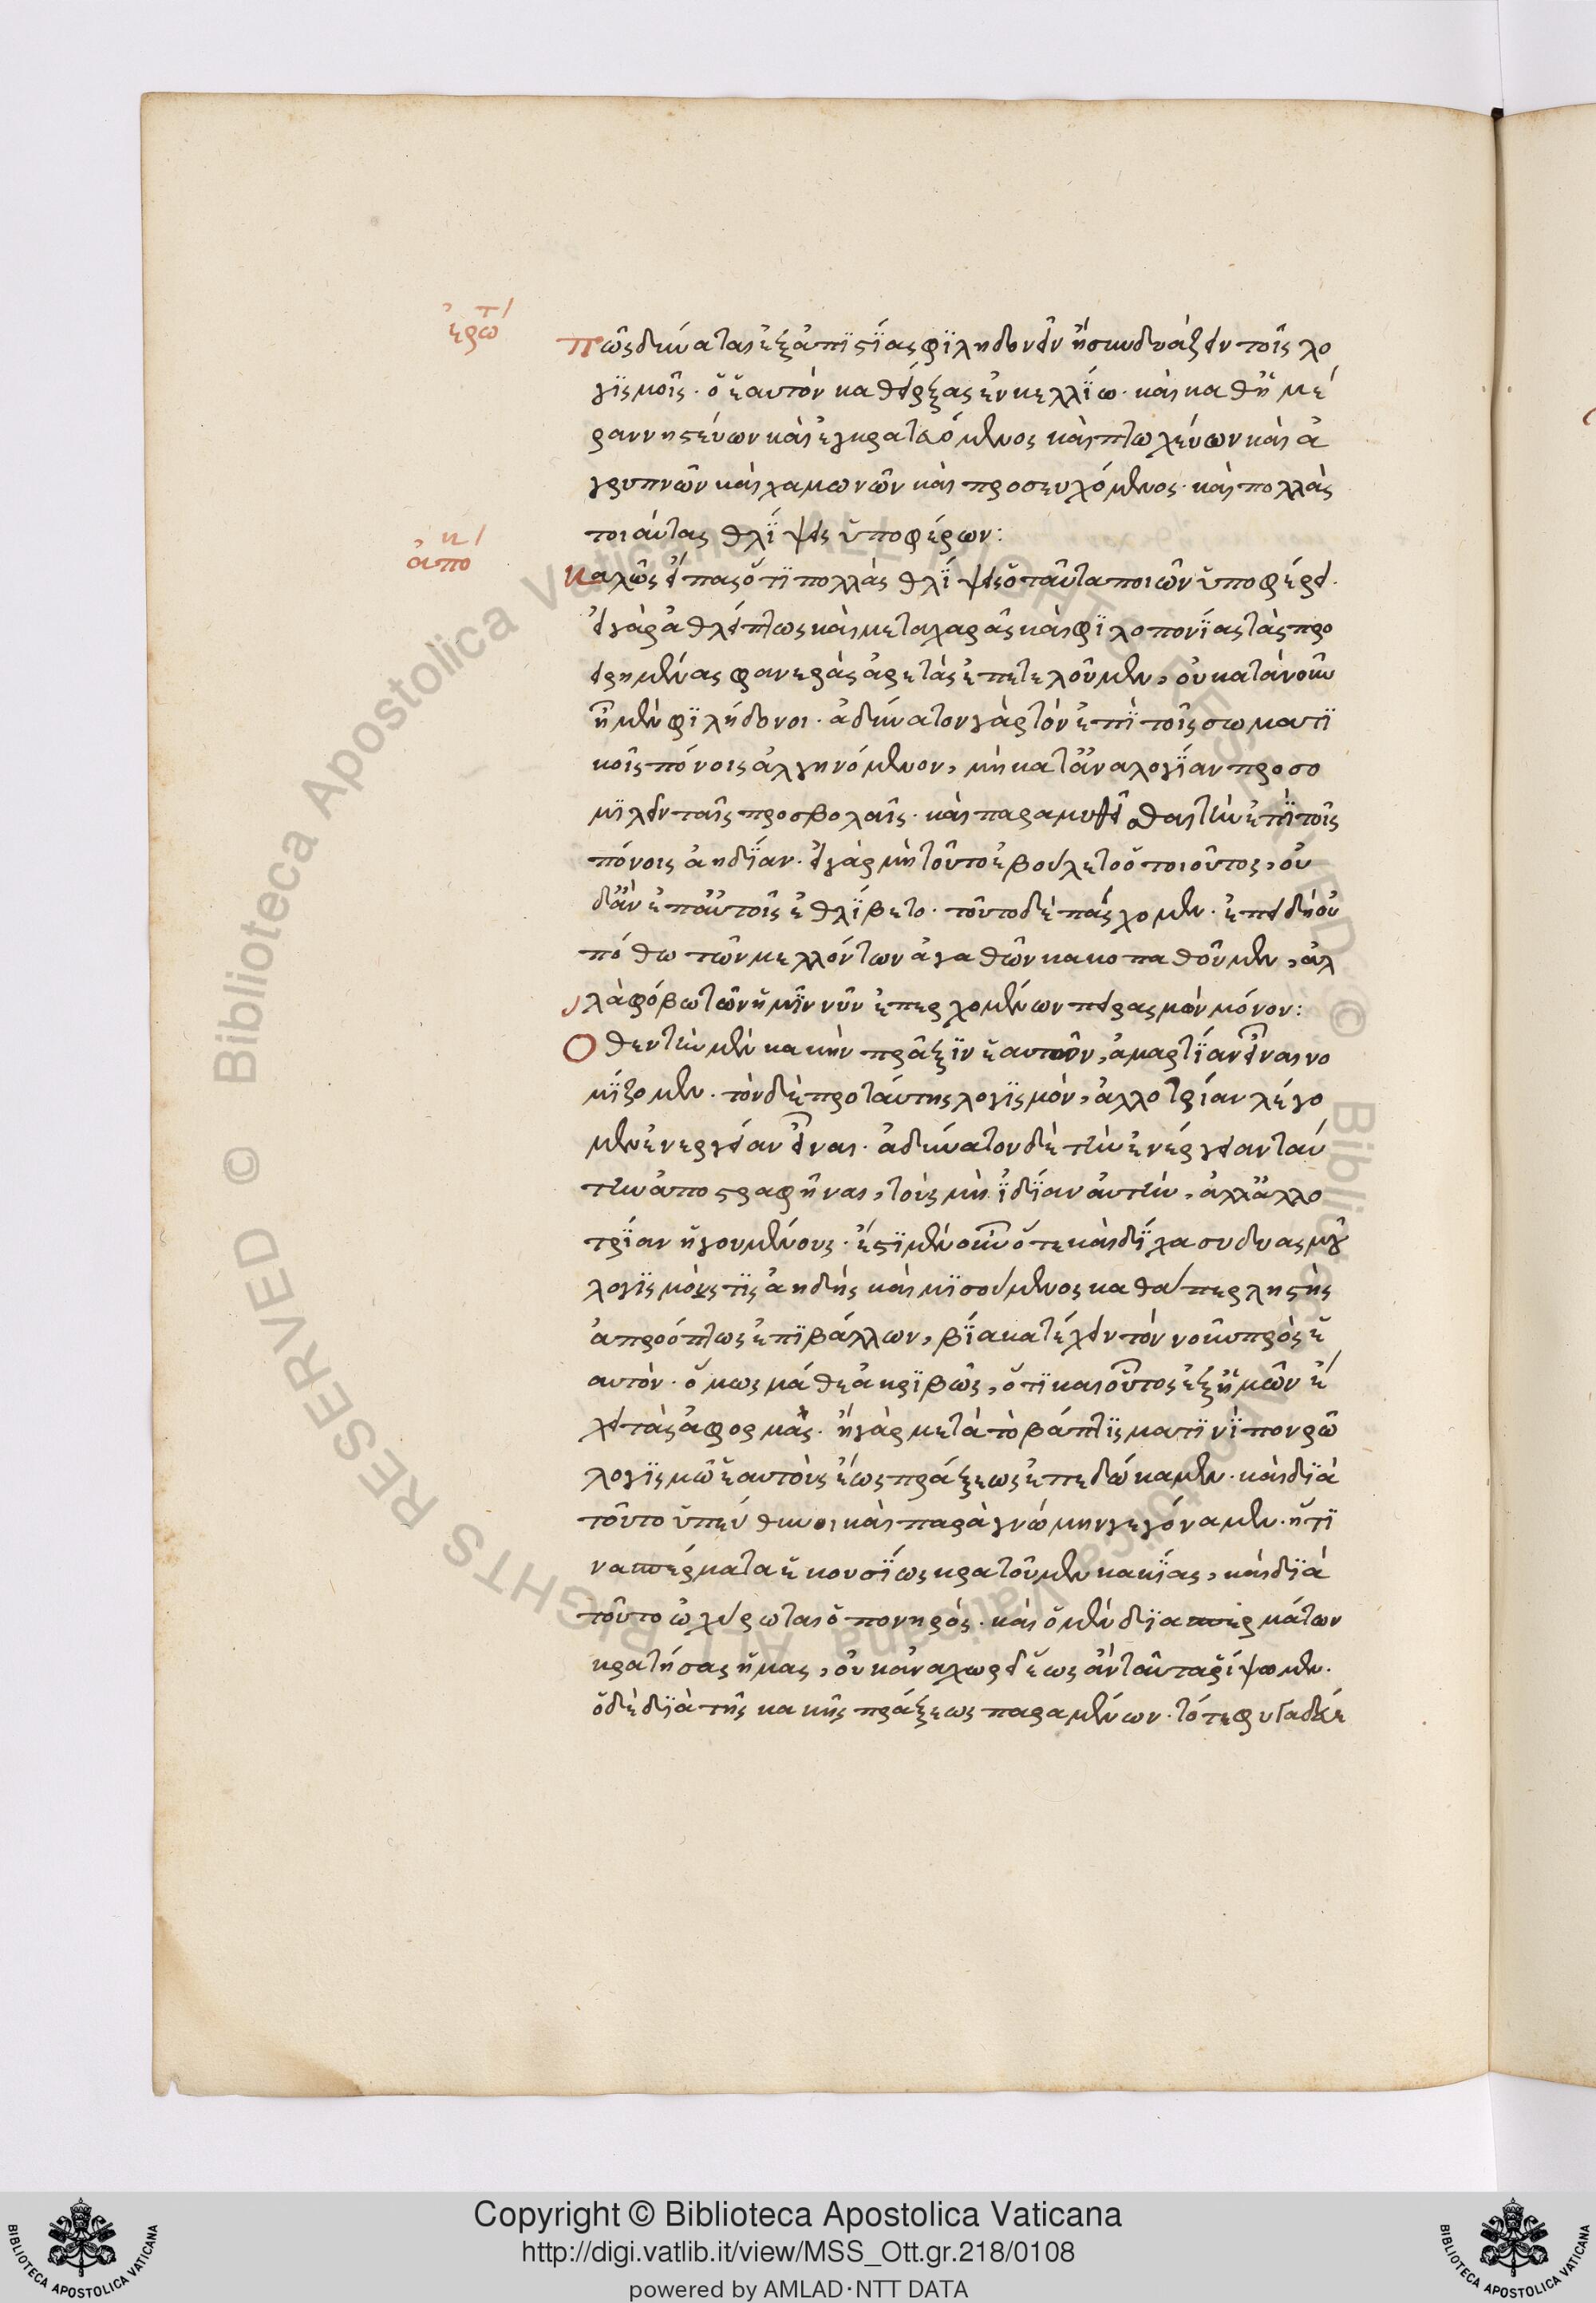 ἐρωτ/
πῶς δύναται ἐξ ἀπϊστΐας φϊληδονεῖν ἢ συνδυάζειν τοῖς λο
γϊσμοῖς· ὁ ἑαυτὸν καθείρξας ἐν κελλΐω· καὶ καθημέ
ραν νηστεύων καὶ ἐγκρατευόμενος καὶ πτωχεύων καὶ ἀ
γρυπνῶν καὶ χαμωνῶν καὶ προσευχόμενος· καὶ πολλὰς
τοιαύτας θλΐψεις ὑποφέρων:
ἀποκ/
Καλῶς εἶπας ὅτϊ πολλὰς θλΐψεις ὁ ταῦτα ποιῶν ὑποφέρει·
εἰ γὰρ ἀθλείπτως καὶ μετὰ χαρᾶς καὶ φϊλοπονΐας τὰς προ
ειρημένας φανερὰς ἀρετὰς ἐπετελοῦμεν, οὐ κατὰ νοῦν
ἦμεν φϊλήδονοι· ἀδύνατον γὰρ τὸν ἐπῒ τοῖς σωματϊ
κοῖς πόνοις ἀλγηνόμενον, μὴ κατ' ἀναλογΐαν προσο
μϊλεῖν ταῖς προσβολαῖς· καὶ παραμυθεῖσθαι τὴν ἐπῒ τοῖς
πόνοις ἀηδΐαν· εἰ γὰρ μὴ τοῦτο ἐβούλετο ὁ ποιοῦτος, οὐ
δ' ἂν ἐπ' αὐτοῖς ἐθλΐβετο· τοῦτο δὲ πάσχομεν· ἐπειδὴ οὐ
πόθω τῶν μελλόντων ἀγαθῶν κακοπαθοῦμεν, ἀλ
λὰ φόβω τῶν ἡμῖν νῦν ἐπερχομένων πειρασμῶν μόνον:
Ὅθεν τὴν μὲν κακὴν πρᾶξϊν ἑαυτῶν, ἁμαρτΐαν εἶναι νο
μΐζομεν· τὸν δὲ προ ταύτης λογϊσμὸν, ἀλλοτρίαν λέγο
μεν ἐνεργείαν εἶναι· ἀδύνατον δὲ τὴν ἐνέργειαν ταύ
την ἀποστραφῆναι, τοὺς μὴ ἰδΐαν αὐτὴν, ἀλλ' ἀλλο
τρΐαν ἡγουμένους· ἔστϊ μὲν οὖν ὅτε καὶ δΐχα συδυασμοῦ
λογϊσμοῦς τϊς ἀηδὴς καὶ μϊσούμενος καθάπερ ληστὴς
ἀπροόπτως ἐπϊβάλλων, βΐα κατέχειν τὸν νοῦν πρὸς ἑ
αυτὸν· ὅμως μάθε ἀκρϊβῶς, ὅτϊ καὶ οὗτος ἐξ ἡμῶν ἔ
χει τὰς ἀφορμὰς· ἢ γὰρ μετὰ τὸ βάπτϊσμα τϊνῒ πονρῶ
λογϊσμῶ ἑαυτοὺς ἕως πράξεως ἐπεδώκαμεν· καὶ δϊὰ
τοῦτο ὑπεύθυνοι καὶ παρὰ γνώμην γεγόναμεν· ἤ τϊ
να σπέρματα ἑκουσΐως κρατοῦμεν κακΐας, καὶ δϊὰ
τοῦτο ὠχύρωται ὁ πονηρός· καὶ ὁ μὲν δϊα σπερμάτων
κρατήσας ἡμας, οὐκ ἀναχωρεῖ ἕως ἂν ταῦτα ῥίψωμεν·
ὁ δὲ δϊὰ τῆς κακῆς πράξεως παραμένων· τότε φυγαδεύε
Copyright © Biblioteca Apostolica Vaticana
http://digi.vatlib.it/view/MSS_Ott.gr.218/0108
powered by AMLAD·NTT DATA